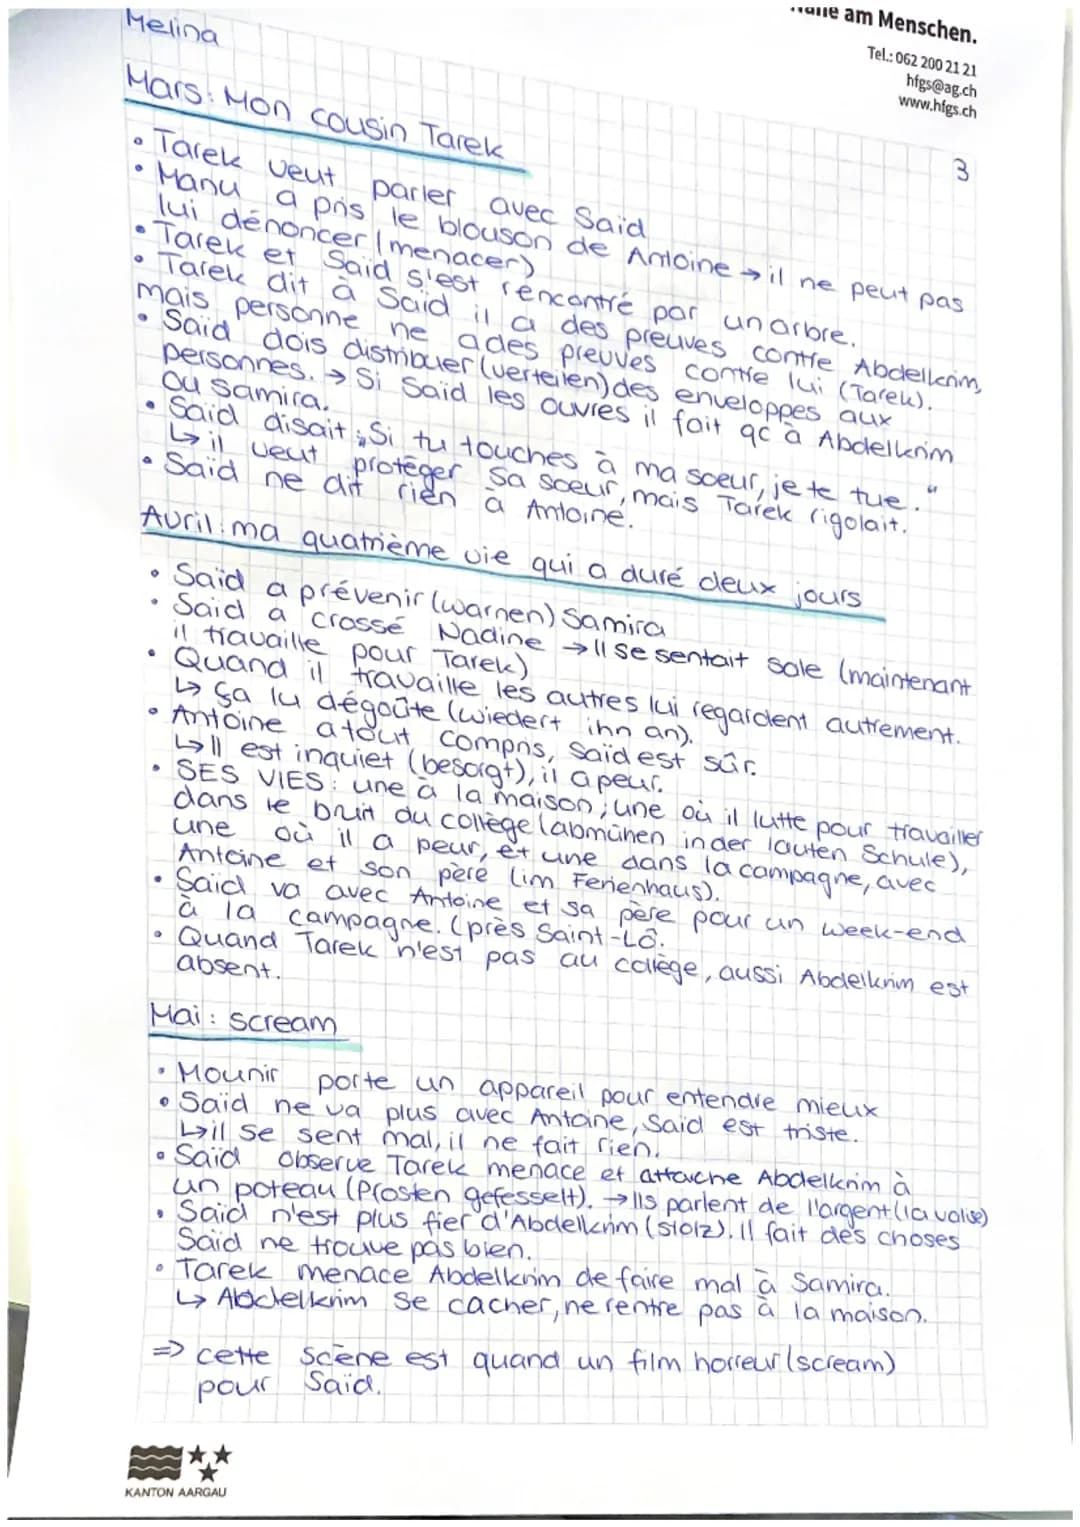 Melina
Nähe am Menschen.
Tel.: 062 200 21 21
hfgs@ag.ch
www.hfgs.ch
3
Mars: Mon cousin Tarek
• Tarek veut parler avec Said
• Manu a pris le blouson de Antoine → il ne peut pas
lui dénoncer (menacer)
• Tarek et Said s'est rencontré par un arbre.
• Tarek dit à Said il a des preuves contre Abdelkrim,
mais personne ne a des preuves contre lui (Tarek).
• Saïd dois distribuer (verteilen) des enveloppes aux
personnes. → Si Saïd les ouvres il fait qc à Abdelkrim
ou samira.
• Said disait „Si tu touches à ma soeur, je te tue."
↳ il veut protéger sa soeur, mais Tarek rigolait.
• Saïd ne dit rien à Antoine.
Avril: ma quatrième vie qui a duré deux jours
• Saïd a prévenir (warnen) Samira
• Said a crossé Nadine → Il se sentait sale (maintenant
il travaille pour Tarek)
• Quand il travaille les autres lui regardent autrement.
↳ ça lu dégoûte (wiedert ihn an).
• Antoine a tout compris, Saïd est sûr.
↳ Il est inquiet (besorgt), il a peur.
• SES VIES: une à la maison; une où il lutte pour travailler
dans le bruit du collège (abmühen in der lauten Schule),
une où il a peur, et une dans la campagne, avec
Antoine et son père (im Ferienhaus).
• Saïd va avec Antoine et sa père pour un week-end
à la campagne. (près Saint-Lô.
• Quand Tarek n'est pas au collège, aussi Abdelkrim est
absent.
Mai: scream
• Mounir porte un appareil pour entendre mieux
• Saïd ne va plus avec Antoine, Said est triste.
↳ il se sent mal, il ne fait rien.
• Saïd observe Tarek menace et attache Abdelkrim à
un poteau (Pfosten gefesselt). → Ils parlent de l'argent (la valise)
• Said n'est plus fier d'Abdelkrim (stolz). Il fait des choses
Saïd ne trouve pas bien.
• Tarek menace Abdelkrim de faire mal à Samira.
↳ Abdelkrim se cacher, ne rentre pas à la maison.
⇒ cette scène est quand un film horreur (scream)
pour Saïd.
KANTON AARGAU